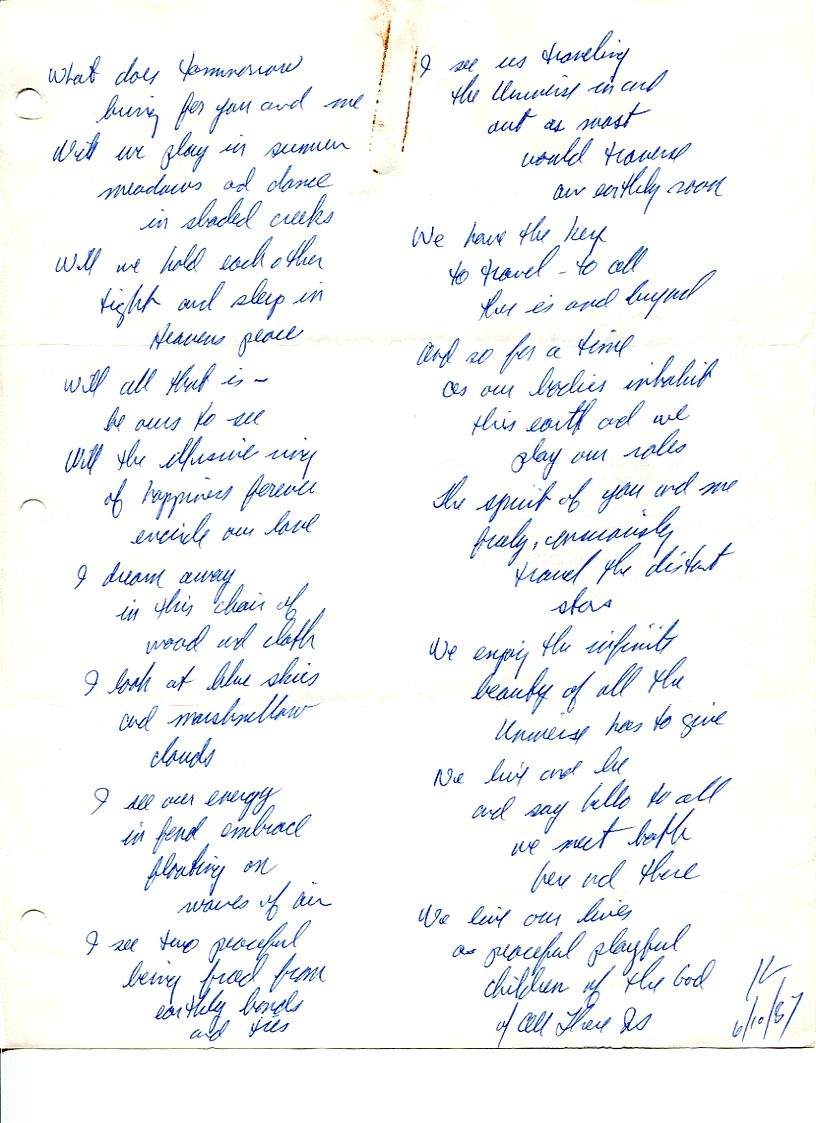 What does tommorrow
bring for you and me
Will we play in summer
meadows ad dance
in shaded creeks
Will we hold each other
tight and sleep in
Heavens peace
Will all that is –
be ours to see
Will the illusive ring
of happiness forever
encircle our love
I dream away
in this chair of
wood ad cloth
I look at blue skies
and marshmellow
clouds
I see our energy
in fond embrace
floating on
waves of air
I see two peaceful
being freed from
earthly bonds
and ties
I see us traveling
the Universe in and
out as most
would traverse
an earthly road
We have the key
to travel – to all
ther is and beyond
and so for a time
as our bodies inhabit
this earth ad we
play our roles
The spirit of you and me
freely,
travel the distant
stars
We enjoy the infinite
beauty of all the
Universe has to give
We live and be
and say hello to all
we meet both
here and there
We live our lives
as peaceful playful
children of the God
of all There Is
6/10/87